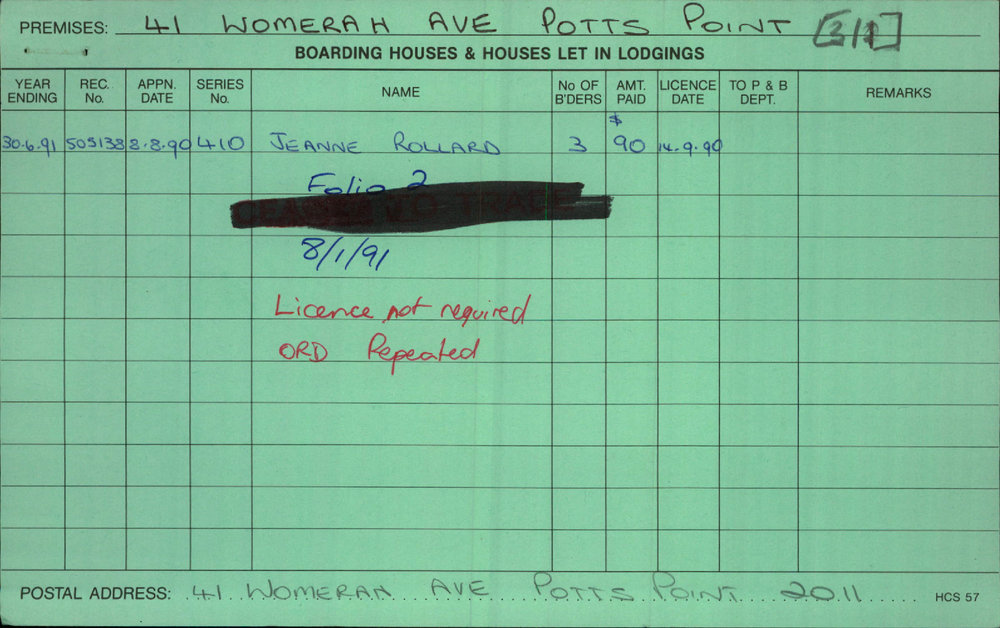 PREMISES: 41 WOMERAH AVE POTTS POINT [3/1]
BOARDING HOUSES & HOUSES LET IN LODGINGS
YEAR ENDING REC. No. APPN. DATE SERIES No. NAME No OF B'DERS AMT. PAID LICENCE DATE TO P & B DEPT. REMARKS
30.6.91 505138 8.8.90 410 JEANNE ROLLARD 3 $ 90 14.9.90
Folio 2
8/1/91
Licence not required
ORD Repeated
POSTAL ADDRESS: 41 WOMERAH AVE POTTS POINT 2011 HCS 57